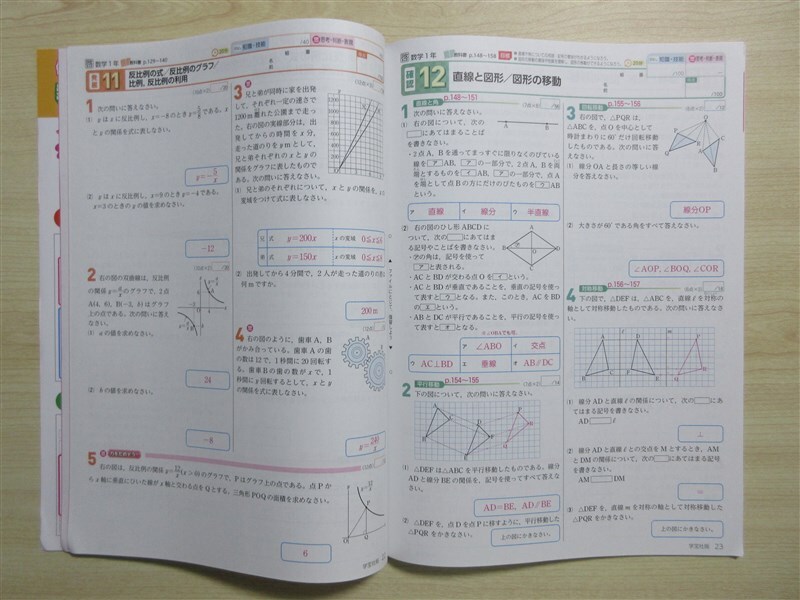 数学1年
教科書 p.129~140
知識・技能
思考・判断・表現
11
反比例の式/反比例のグラフ/
比例, 反比例の利用
1 次の問いに答えなさい。
とyの関係を式に表しなさい。
② yはxに反比例し, x=9のときy=-4である。
x=3のときのyの値を求めなさい。
-12
2 右の図の双曲線は, 反比例
上の点である。次の問いに答え
なさい。
① aの値を求めなさい。
24
② bの値を求めなさい。
-8
3 兄と弟が同時に家を出発
して, それぞれ一定の速さで
1200m離れた公園まで走っ
た。右の図の実線部分は, 出
発してからの時間をx分,
走った道のりをymとして,
兄と弟それぞれのxとyの
関係をグラフに表したもので
ある。次の問いに答えなさい。
① 兄と弟のそれぞれについて, xとyの関係を,
変域をつけて式に表しなさい。
兄 式 y=200x xの変域
弟 式 y=150x xの変域
② 出発してから4分間で, 2人が走った道のりの差は
何mですか。
200m
4 右の図のように, 歯車A, B
がかみ合っている。歯車Aの歯
の数は12で, 1秒間に20回転す
る。歯車Bの歯の数がxで, 1
秒間にy回転するとして, xとy
の関係を式に表しなさい。
5
右の図は, 反比例の関係y=12/x(x>0)のグラフで, Pはグラフ上の点である。点Pか
らx軸に垂直に引いた線がx軸と交わる点をQとする。三角形POQの面積を求めなさい。
6
数学1年
教科書 p.148~158
知識・技能
思考・判断・表現
確認 12 直線と図形/図形の移動
1 直線と角 p.148~151
次の問いに答えなさい。
① 右の図について, 次の
にあてはまることば
を書きなさい。
・2点A, Bを通ってまっすぐに限りなくのびている
線をアAB, アの一部分で, 2点A, Bを両
端とするものをイAB, アの一部分で, 点A
を端として点Bの方にだけのびたものをウAB
という。
ア 直線 イ 線分 ウ 半直線
② 右の図のひし形ABCD
について, 次の にあてはま
る記号やことばを書きなさい。
アと表される。
・ACとBDが交わる点Oをイという。
・ACとBDが垂直であることを, 垂直の記号を使っ
て表すとウとなる。また, このとき, ACをBD
のエという。
・ABとDCが平行であることを, 平行の記号を使っ
て表すとオとなる。
ア ∠ABO イ 交点
ウ AC⊥BD エ 垂線 オ AB∥DC
2 平行移動 p.154~155
下の図について, 次の問いに答えなさい。
① △DEFは△ABCを平行移動したものである。線分
ADと線分BEの関係を, 記号を使ってすべて答えな
さい。
AD=BE, AD∥BE
② △DEFを, 点Dを点Pに移すように, 平行移動した
△PQRをかきなさい。
上の図にかきなさい。
3 回転移動 p.155~156
右の図で, △PQRは,
△ABCを, 点Oを中心として
時計まわりに60°だけ回転移動
したものである。次の問いに答
えなさい。
① 線分OAと長さの等しい線
分を答えなさい。
線分OP
② 大きさが60°である角をすべて答えなさい。
∠AOP, ∠BOQ, ∠COR
4 対称移動 p.156~157
下の図で, △DEFは, △ABCを, 直線ℓを対称の
軸として対称移動したものである。次の問いに答えな
さい。
① 線分ADと直線ℓの関係について, 次の にあ
てはまる記号を書きなさい。
AD ℓ
⊥
② 線分ADと直線ℓとの交点をMとするとき, AM
とDMの関係について, 次の にあてはまる記号
を書きなさい。
AM DM
=
③ △DEFを, 直線mを対称の軸として対称移動した
△PQRをかきなさい。
上の図にかきなさい。
学宝社㊞ 23